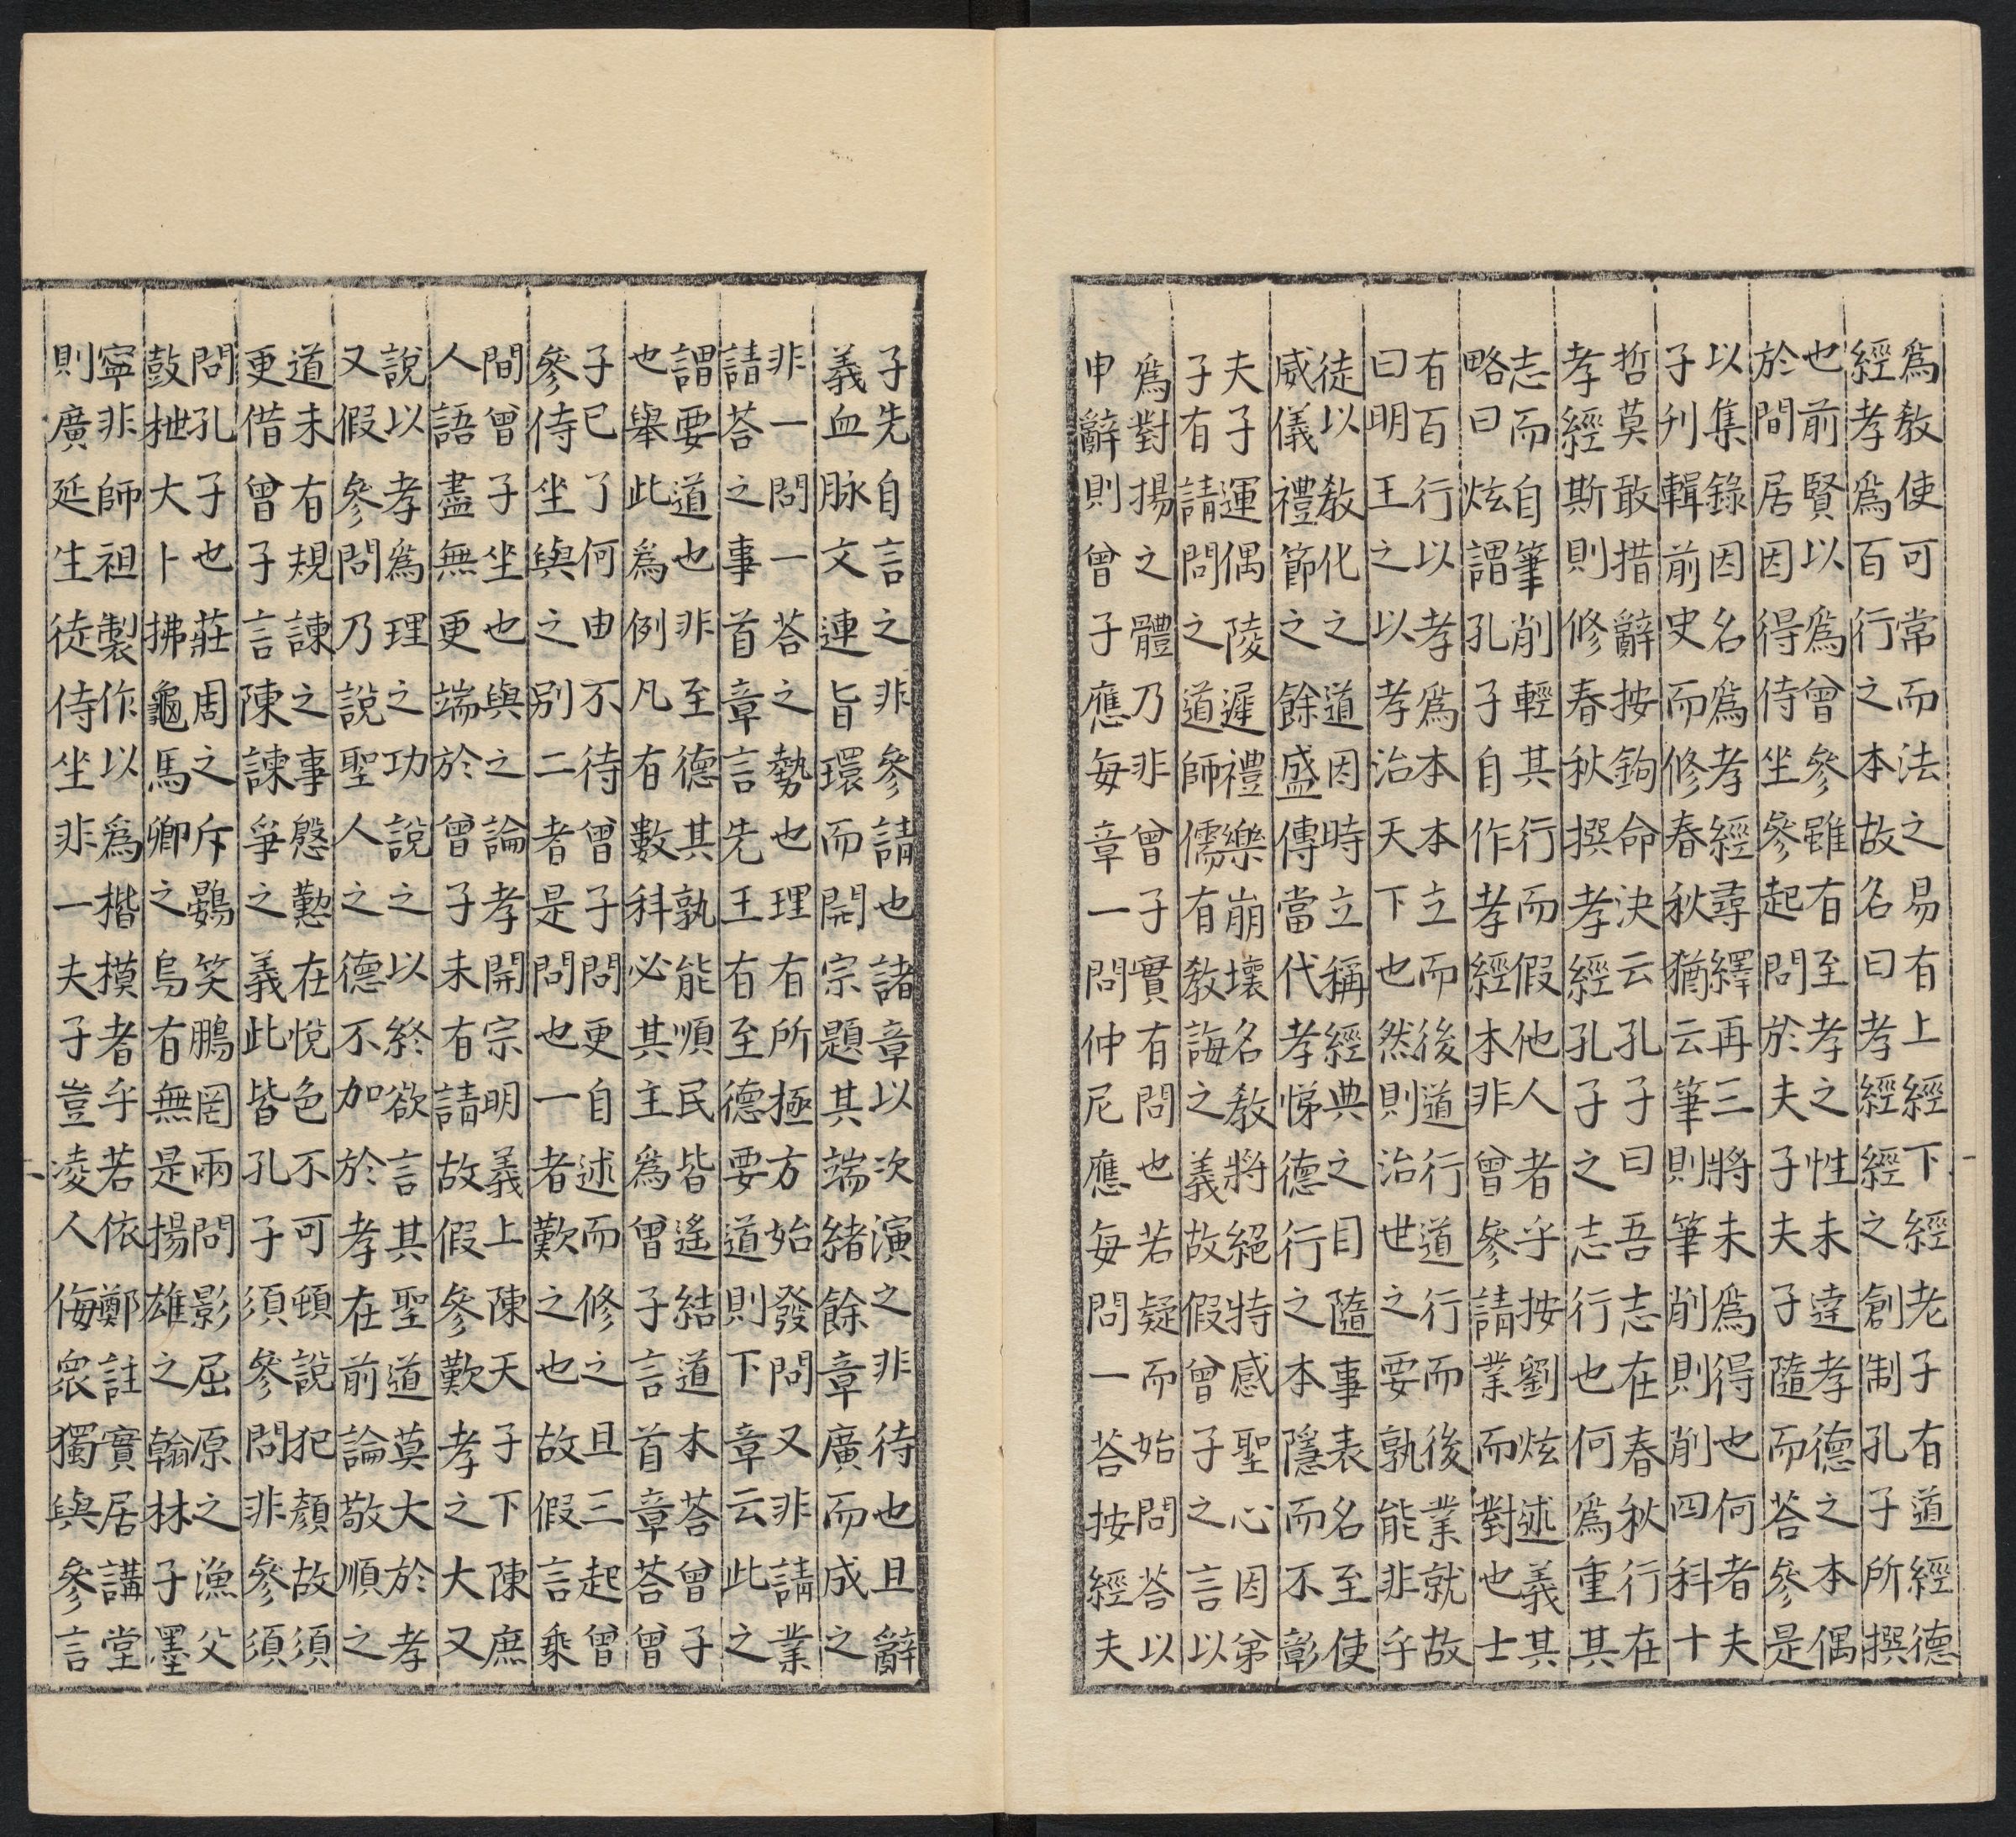 爲教使可常而法之易有上經下經老子有道經德
經孝爲百行之本故名曰孝經經之創制孔子所撰
也前賢以爲曾參雖有至孝之性未達孝德之本偶
於間居因得侍坐參起問於夫子夫子隨而荅參是
以集錄因名爲孝經尋繹再三將未爲得也何者夫
子刋輯前史而修春秋猶云筆則筆削則削四科十
哲莫敢措辭按鉤命決云孔子曰吾志在春秋行在
孝經斯則修春秋撰孝經孔子之志行也何爲重其
志而自筆削輕其行而假他人者乎按劉炫述義其
略曰炫謂孔子自作孝經本非曾參請業而對也士
有百行以孝爲本本立而後道行道行而後業就故
曰明王之以孝治天下也然則治世之要孰能非乎
徒以教化之道因時立稱經典之目隨事表名至使
威儀禮節之餘盛傳當代孝悌德行之本隱而不彰
夫子運偶陵遲禮樂崩壞名教將絕特感聖心因弟
子有請問之道師儒有教誨之義故假曾子之言以
爲對揚之體乃非曾子實有問也若疑而始問荅以
申辭則曾子應每章一問仲尼應每問一荅按經夫
子先自言之非參請也諸章以次演之非待也且辭
義血脉文連旨環而開宗題其端緒餘章廣而成之
非一問一荅之勢也理有所極方始發問又非請業
請荅之事首章言先王有至德要道則下章云此之
謂要道也非至德其孰能順民皆遙結道本荅曾子
也舉此爲例凡有數科必其主爲曾子言首章荅曾
子已了何由不待曾子問更自述而修之且三起曾
參侍坐與之別二者是問也一者歎之也故假言乘
間曾子坐也與之論孝開宗明義上陳天子下陳庶
人語盡無更端於曾子未有請故假參歎孝之大又
說以孝爲理之功說之以終欲言其聖道莫大於孝
又假參問乃說聖人之德不加於孝在前論敬順之
道未有規諫之事慇懃在悅色不可頓說犯顏故須
更借曾子言陳諫爭之義此皆孔子須參問非參須
問孔子也莊周之斥鷃笑鵬罔兩問影屈原之漁父
鼓枻大卜拂龜馬卿之烏有無是揚雄之翰林子墨
寧非師祖製作以爲楷模者乎若依鄭註實居講堂
則廣延生徒侍坐非一夫子豈凌人侮衆獨與參言